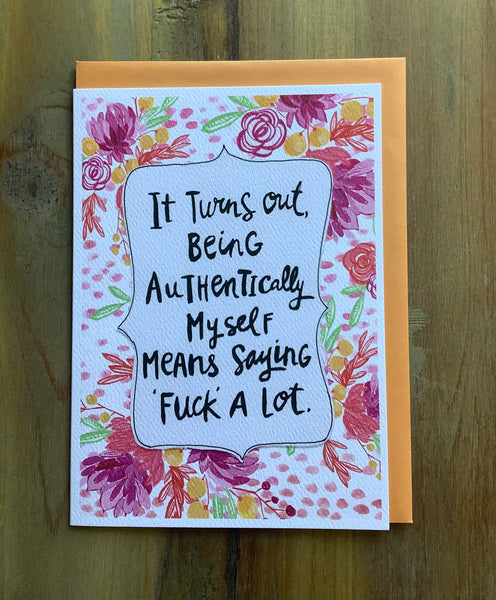 It Turns out,
Being
Authentically
Myself
Means Saying
'Fuck' A Lot.